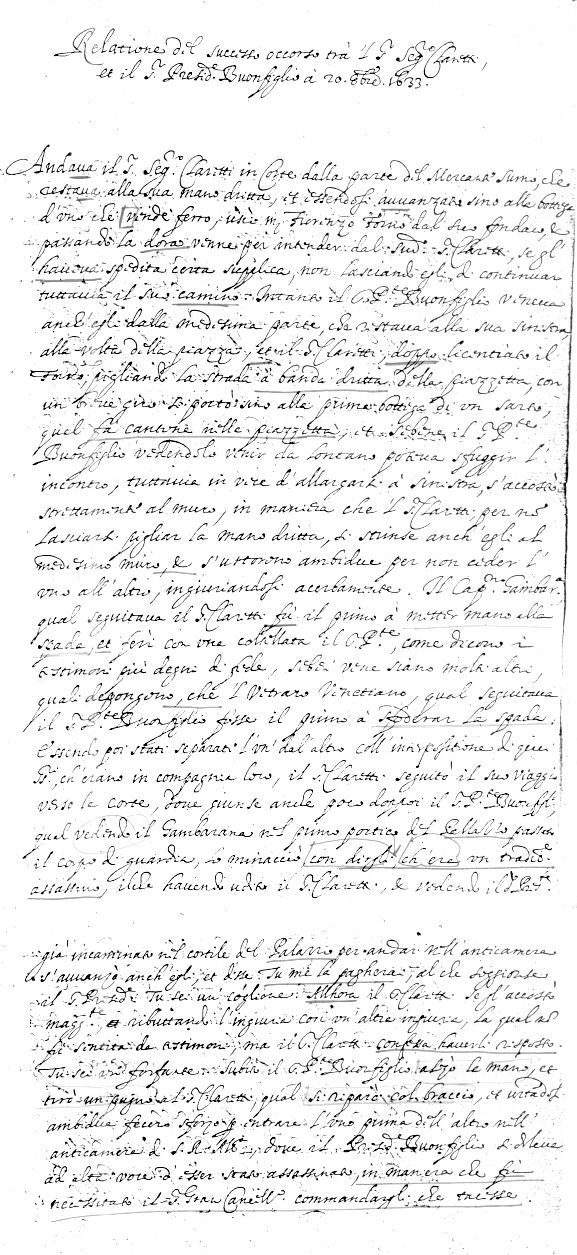 Relatione del successo occorso trà 'l S.r Seg.o Claretti,
et il S.r Presid.e Buonfiglio à 20. 8bre. 1633.
Andaua il S.r Seg.o Claretti in Corte dalla parte del Mercant Sumo, che
restaua alla sua mano dritta, et essendosi auuanzato sino alla bottega
d'uno che vende ferro, uscì m. Fiorenzo Torno dal suo fondaco, &
passando la dora venne per intender dal sud.o S.r Claretti, se gl'
haueua spedita certa supplica, non lasciando egli di continuar
tuttauia il suo camino. Intanto il S.r P.te Buonfiglio veneua
anch'egli dalla medesima parte, che restaua alla sua sinistra,
alla volta della piazza, et il S.r Claretti, doppo licentiato il
Torno, pigliando la strada à banda dritta della piazzetta, con
un breue giro si portò sino alla prima bottega di un sarto,
quel fà cantone nella piazzetta, et sebene il S.r P.te
Buonfiglio vedendolo venir da lontano poteua sfuggir l'
incontro, tuttauia in vece d'allargarsi à sinistra, s'accostò
strettamente al muro, in maniera che 'l S.r Claretti per nõ
lasciarsi pigliar la mano dritta, si strinse anch'egli al
medesimo muro, & s'urtorono ambidue per non ceder l'
uno all'altro, ingiuriandosi acerbamente. Il Cap.no Gambar.a
qual seguitaua il S.r Claretti fù il primo à metter mano alla
spada, et ferì con una coltellata il S.r P.te, come dicono i
testimoni più degni di fede, sebene ve ne siano molti altri,
quali depongono, che 'l Vetraro Venetiano, qual seguitaua
il S.r P.te Buonfiglio fosse il primo à sfoderar la spada.
Essendo poi stati separati l'un dal'altro coll'interpositione di quei
ch'erano in compagnia loro, il S.r Claretti seguitò il suo viaggio
verso la corte, doue giunse anche poco doppoi il S.r P.te Buonfigl.o,
qual vedendo il Gambarana nel primo portico del Palazzo passato
il corpo di guardia, lo minacciò con dirgli ch'era un traditore
assassino, il che hauendo udito il S.r Claretti, & vedendo il S.r Pr.te
già incaminato nel cortile del Palazzo per andar nell'anticamera
s'auuanzò anch'egli, et disse Tu me la pagherai, al che soggionse
il S.r Presid.e Tu sei un coglione. Allhora il S.r Claretti se gl'accostò
magg.te, et ributtando l'ingiuria con un'altra ingiuria, la qual nõ
fù sentita da testimoni, ma il S.r Claretti confessa hauerli risposto.
Tu sei un forfante. Subito il S.r P.te Buonfiglio alzò la mano, et
tirò un pugno al S.r Claretti, qual si riparò col braccio, et urtadosi
ambidue fecero sforzo p entrare l'uno prima dell'altro nell'
anticamera di S. R. Alt.a, doue il S.r Presid.e Buonfiglio si doleua
ad alta voce d'esser stato assassinato, in maniera che fù
necessitato il S.r Gran Cancell.e commandargli che tacesse.